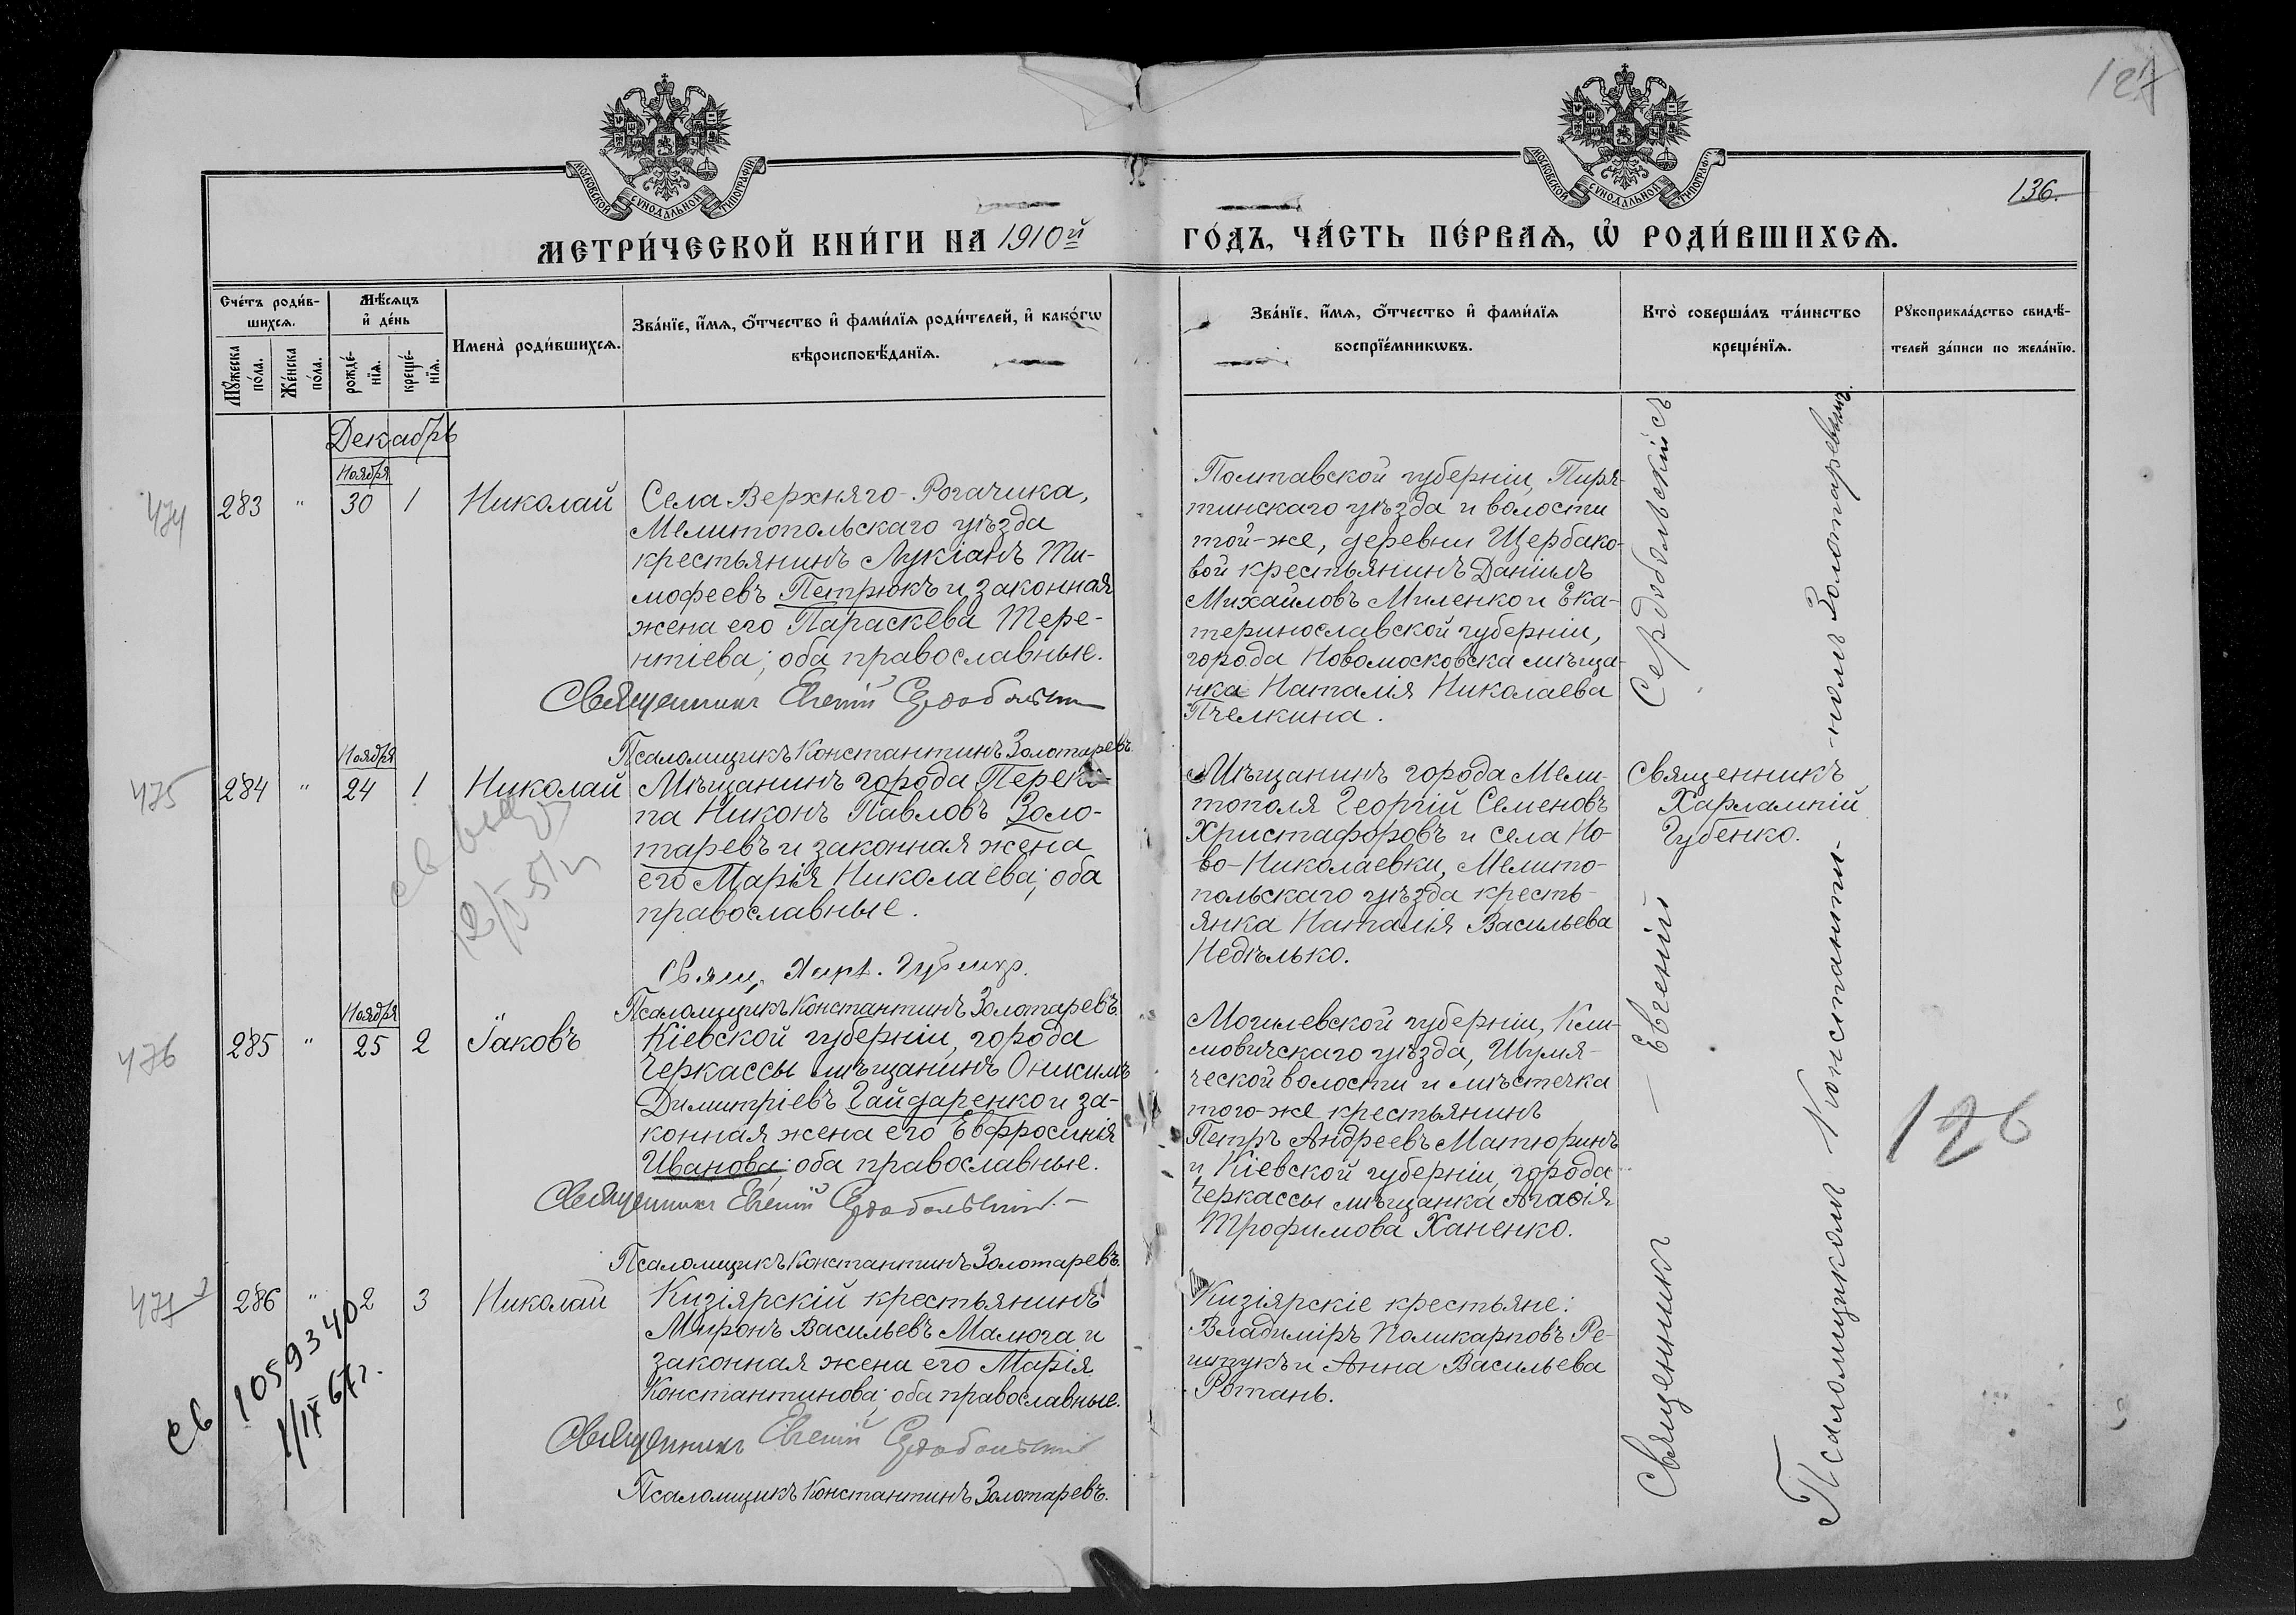 127
МОСКОВСКОЙ СѴНОДАЛЬНОЙ ТИПОГРАФИИ
МОСКОВСКОЙ СѴНОДАЛЬНОЙ ТИПОГРАФИИ
136.
МЕТРИ́ЧЕСКОЙ КНИ́ГИ НА 1910й
ГО́ДЪ, ЧА́СТЬ ПЕ́РВАѦ, Ѡ҆ РОДИ́ВШИХСѦ.
Сче́тъ роди́в-
шихсѧ.
Мѣ́сѧцъ
и҆ де́нь
Мꙋ́жеска по́ла.
Же́нска по́ла.
рожде́-
нїѧ.
креще́-
нїѧ.
Имена̀ роди́вшихсѧ.
Зва́нїе, и҆́мѧ, ѻ҆́тчество и҆ фами́лїѧ роди́телей, и҆ како́гѡ
вѣроисповѣ́данїѧ.
Зва́нїе, и҆́мѧ, ѻ҆́тчество и҆ фами́лїѧ
воспрїе́мникѡвъ.
Кто̀ соверша́лъ та́инство
креще́нїѧ.
Рꙋкоприкла́дство свидѣ́-
телей за́писи по жела́нїю.
Декабрь
Ноября
474
283 " 30 1 Николай
Села Верхняго-Рогачика,
Мелитопольскаго уѣзда
крестьянинъ Лукіанъ Ти-
мофеевъ Петрюкъ и законная
жена его Параскева Тере-
нтіева; оба православные.
Священникъ Евгеній Сердобольскій
Псаломщикъ Константинъ Золотаревъ.
Полтавской губерніи, Пиря-
тинскаго уѣзда и волости
той-же, деревни Щербако-
вой крестьянинъ Даніилъ
Михайловъ Миленко и Ека-
теринославской губерніи,
города Новомосковска мѣща-
нка Наталія Николаева
Пчелкина.
Ноября
475
284 " 24 1 Николай
Мѣщанинъ города Переко-
па Никонъ Павловъ Золо-
таревъ и законная жена
его Марія Николаева; оба
православные.
Свящ. Харл. Губенко.
Псаломщикъ Константинъ Золотаревъ.
Мѣщанинъ города Мели-
тополя Георгій Семеновъ
Христафоровъ и села Но-
во-Николаевки, Мелито-
польскаго уѣзда кресть-
янка Наталія Васильева
Недѣлько.
Священникъ
Харлампій
Губенко.
Ноября
476
285 " 25 2 Іаковъ
Кіевской губерніи, города
Черкассы мѣщанинъ Онисимъ
Димитріевъ Гайдаренко и за-
конная жена его Евфросинія
Иванова; оба православные.
Священникъ Евгеній Сердобольскій.
Псаломщикъ Константинъ Золотаревъ.
Могилевской губерніи, Кли-
мовичскаго уѣзда, Шумя-
ческой волости и мѣстечка
того-же крестьянинъ
Петръ Андреевъ Матюринъ
и Кіевской губерніи, города
Черкассы мѣщанка Агафія
Трофимова Ханенко.
126
477
286 " 2 3 Николай
Кизіярскій крестьянинъ
Миронъ Васильевъ Малюга и
законная жена его Марія
Константинова; оба православные.
Священникъ Евгеній Сердобольскій
Псаломщикъ Константинъ Золотаревъ.
Кизіярскіе крестьяне:
Владиміръ Поликарповъ Ре-
шпукъ и Анна Васильева
Ротань.
св 1059340
1/IX 67г.
Священникъ Евгеній Сердобольскій съ
Псаломщикомъ Константи-номъ Золотаревымъ.